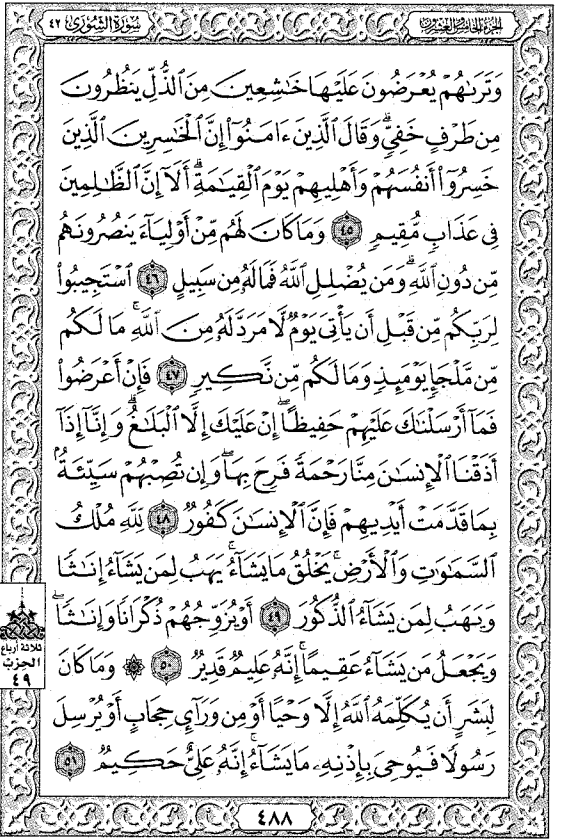 الجزء الخامس والعشرون
سورة الشورى ٤٢
وَتَرَىٰهُمْ يُعْرَضُونَ عَلَيْهَا خَٰشِعِينَ مِنَ ٱلذُّلِّ يَنظُرُونَ
مِن طَرْفٍ خَفِىٍّ ۗ وَقَالَ ٱلَّذِينَ ءَامَنُوٓا۟ إِنَّ ٱلْخَٰسِرِينَ ٱلَّذِينَ
خَسِرُوٓا۟ أَنفُسَهُمْ وَأَهْلِيهِمْ يَوْمَ ٱلْقِيَٰمَةِ ۗ أَلَآ إِنَّ ٱلظَّٰلِمِينَ
فِى عَذَابٍ مُّقِيمٍ ٤٥ وَمَا كَانَ لَهُم مِّنْ أَوْلِيَآءَ يَنصُرُونَهُم
مِّن دُونِ ٱللَّهِ ۗ وَمَن يُضْلِلِ ٱللَّهُ فَمَا لَهُۥ مِن سَبِيلٍ ٤٦ ٱسْتَجِيبُوا۟
لِرَبِّكُم مِّن قَبْلِ أَن يَأْتِىَ يَوْمٌ لَّا مَرَدَّ لَهُۥ مِنَ ٱللَّهِ ۚ مَا لَكُم
مِّن مَّلْجَإٍ يَوْمَئِذٍ وَمَا لَكُم مِّن نَّكِيرٍ ٤٧ فَإِنْ أَعْرَضُوا۟
فَمَآ أَرْسَلْنَٰكَ عَلَيْهِمْ حَفِيظًا ۖ إِنْ عَلَيْكَ إِلَّا ٱلْبَلَٰغُ ۗ وَإِنَّآ إِذَآ
أَذَقْنَا ٱلْإِنسَٰنَ مِنَّا رَحْمَةً فَرِحَ بِهَا ۖ وَإِن تُصِبْهُمْ سَيِّئَةٌۢ
بِمَا قَدَّمَتْ أَيْدِيهِمْ فَإِنَّ ٱلْإِنسَٰنَ كَفُورٌ ٤٨ لِّلَّهِ مُلْكُ
ٱلسَّمَٰوَٰتِ وَٱلْأَرْضِ ۚ يَخْلُقُ مَا يَشَآءُ ۚ يَهَبُ لِمَن يَشَآءُ إِنَٰثًا
وَيَهَبُ لِمَن يَشَآءُ ٱلذُّكُورَ ٤٩ أَوْ يُزَوِّجُهُمْ ذُكْرَانًا وَإِنَٰثًا ۖ
وَيَجْعَلُ مَن يَشَآءُ عَقِيمًا ۚ إِنَّهُۥ عَلِيمٌ قَدِيرٌ ٥٠ ۞ وَمَا كَانَ
لِبَشَرٍ أَن يُكَلِّمَهُ ٱللَّهُ إِلَّا وَحْيًا أَوْ مِن وَرَآئِ حِجَابٍ أَوْ يُرْسِلَ
رَسُولًا فَيُوحِىَ بِإِذْنِهِۦ مَا يَشَآءُ ۚ إِنَّهُۥ عَلِىٌّ حَكِيمٌ ٥١
ثلاثة أرباع
الحزب
٤٩
٤٨٨